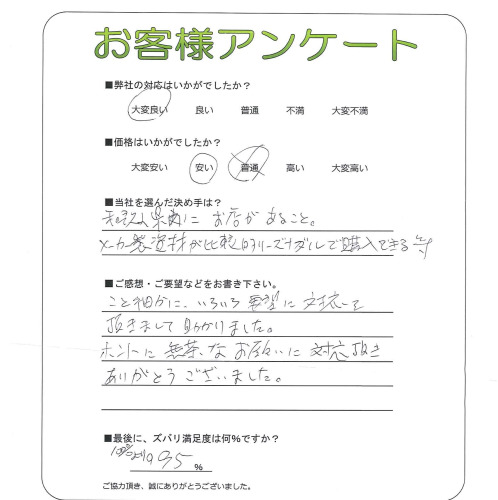 お客様アンケート
■弊社の対応はいかがでしたか？
大変良い 良い 普通 不満 大変不満
■価格はいかがでしたか？
大変安い 安い 普通 高い 大変高い
■当社を選んだ決め手は？
県内に お店が あること。
メーカー製資材が比較的リーズナブルで購入できる
■ご感想・ご要望などをお書き下さい。
こと細かに、いろいろ 要望に 対応して
頂きまして 助かりました。
ホントに 無茶なお願いに 対応頂き
ありがとうございました。
■最後に、ズバリ満足度は何％ですか？
95 %
ご協力頂き、誠にありがとうございました。